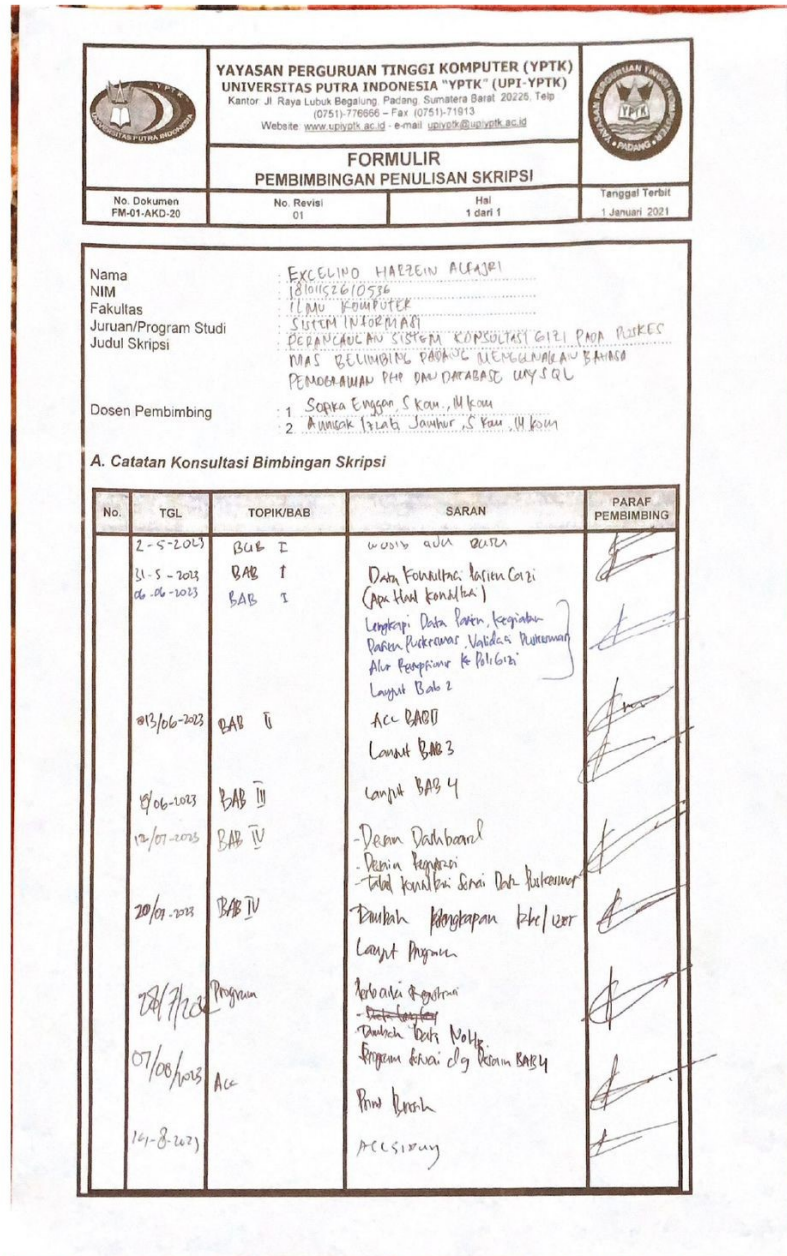 YAYASAN PERGURUAN TINGGI KOMPUTER (YPTK)
UNIVERSITAS PUTRA INDONESIA "YPTK" (UPI-YPTK)
Kantor: Jl. Raya Lubuk Begalung, Padang, Sumatera Barat 20226, Telp
(0751)-776666 – Fax (0751)-71913
Website: www.upiyptk.ac.id - e-mail: upiyptk@upiyptk.ac.id
YPTK
UNIVERSITAS PUTRA INDONESIA
YAYASAN PERGURUAN TINGGI KOMPUTER
YPTK
PADANG
FORMULIR
PEMBIMBINGAN PENULISAN SKRIPSI
No. Dokumen
FM-01-AKD-20
No. Revisi
01
Hal
1 dari 1
Tanggal Terbit
1 Januari 2021
Nama : EXCELINO HARZEIN ALFAJRI
NIM : 18101152610536
Fakultas : ILMU KOMPUTER
Juruan/Program Studi : SISTEM INFORMASI
Judul Skripsi : PERANCANGAN SISTEM KONSULTASI GIZI PADA PUSKES
MAS BELIMBING PADANG MENGGUNAKAN BAHASA
PEMOGRAMAN PHP DAN DATABASE MYSQL
Dosen Pembimbing : 1 Sopka Enggari, S Kom, M Kom
: 2 Annisak Izzaty Jamhur, S Kom, M Kom
A. Catatan Konsultasi Bimbingan Skripsi
No. TGL TOPIK/BAB SARAN PARAF PEMBIMBING
2-5-2023 BAB I
31-5-2023 BAB I Data Konsultasi Pasien Gizi
06-06-2023 BAB I (Apa Hasil Konsultasi)
Lengkapi Data Pasien, Kegiatan
Pasien Puskesmas, Validasi Puskesmas
Alur ke Poli Gizi
Lanjut Bab 2
13/06-2023 BAB II ACC BAB II
Lanjut BAB 3
/06-2023 BAB III Lanjut BAB 4
12/07-2023 BAB IV - Desain Dashboard
- Desain Registrasi
- Tabel Konsultasi Sesuai Data Puskesmas
20/07-2023 BAB IV - Tambah Kelengkapan
Lanjut Program
28/7/202 Program Perbaiki Registrasi
- Tambah Data No Hp.
07/08/2023 Program Sesuai dg Desain BAB 4
Acc
Print Bersih
14-8-2023 ACC SIDANG